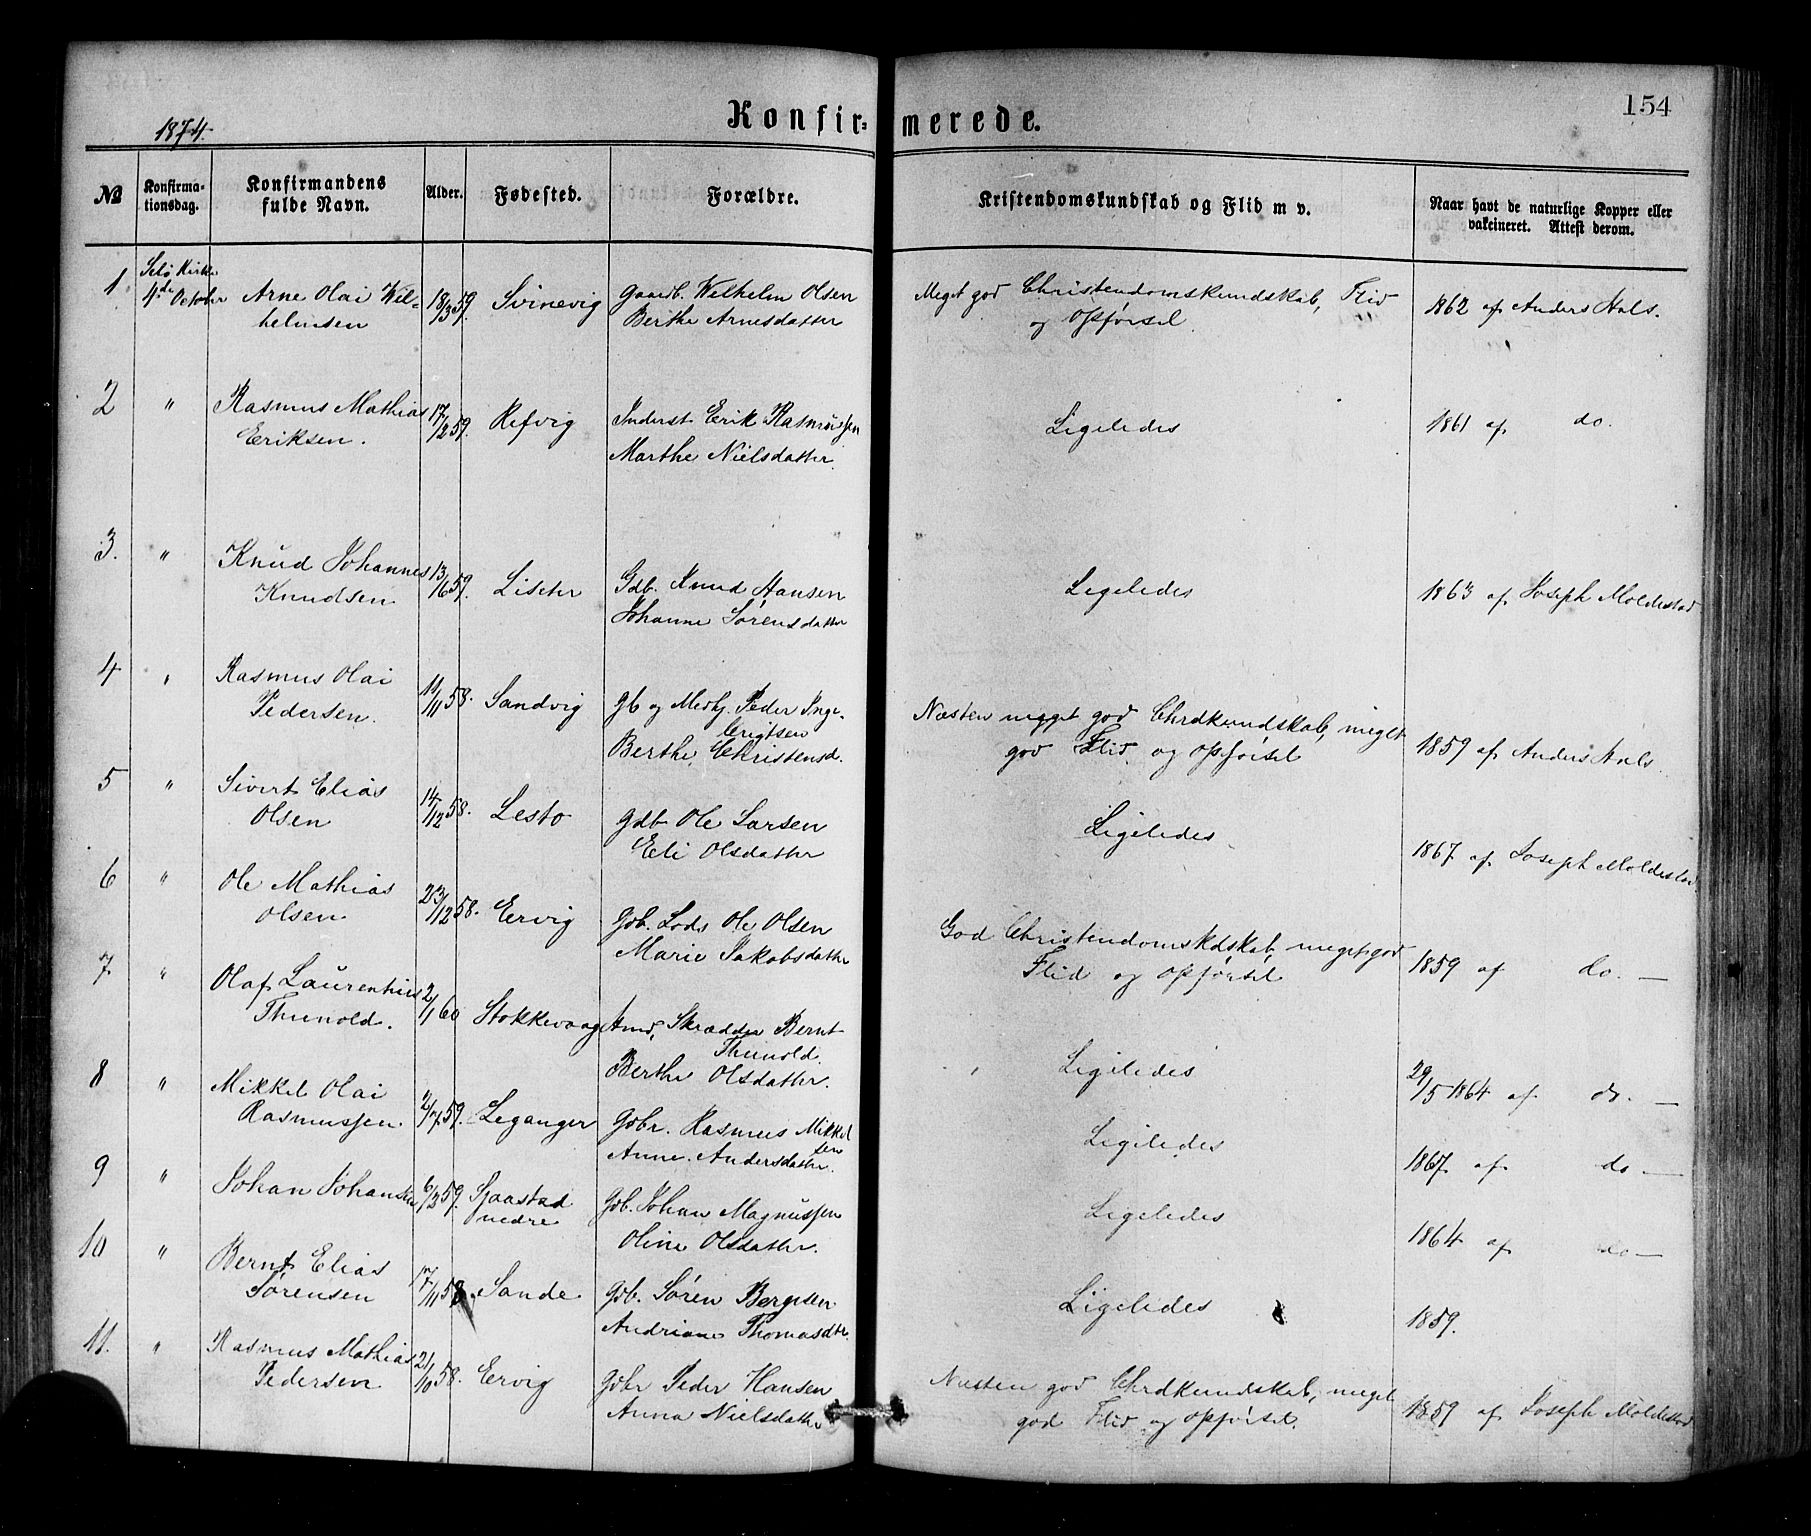 154
1874.
Konfir-merede.
№
Konfirma-
tionsdag.
Konfirmandens
fulde Navn.
Alder.
Fødested.
Forældre.
Kristendomskundskab og Flid m v.
Naar havt de naturlige Kopper eller
vakcineret. Attest derom.
1 Selø Kirke
4de October Arne Olai Wil- 18/3 59. Svinevig Gaardb. Wilhelm Olsen Meget god Christendomskundskab, Flid 1862 af Anders Hals.
helmsen Berthe Arnesdatter og Opførsel.
2 " Rasmus Mathias 17/2 59. Refvig Inderst Erik Rasmussen Ligeledes 1861 af do.
Eriksen. Marthe Nielsdatter.
3. " Knud Johannes 13/6 59. Liseter Gdb. Knud Hansen Ligeledes 1863 af Joseph Moldestad
Knudsen Johanne Sørensdatter
4 " Rasmus Olai 11/11 58. Sandvig Gb og Medhj. Peder Inge- Næsten meget god Chrdkundskab, meget 1859 af Anders Hals.
Pedersen. brigtsen god Flid og Opførsel
Berthe Christensd.
5 " Sivert Elias 14/12 58. Lesto Gdb Ole Larsen Ligeledes 1867 af Joseph Moldestad.
Olsen Eli Olsdatter
6 " Ole Mathias 23/12 58. Ervig Gdb. Lods Ole Olsen God Christendomskdskab, meget god 1859 af do. —
Olsen Marie Jakobsdatter Flid og Opførsel
7 " Olaf Laurentius 2/1 60 Stokkevaag Skrædder Bernt Ligeledes 29/5 1864 af do. —
Thunold. Thunold.
Berthe Olsdatter.
8 " Mikkel Olai 2/7 59. Leganger Gdbr. Rasmus Mikkel Ligeledes 1867 af do —
Rasmussen sen
Anne Andersdatter.
9 " Johan Johansen 6/3 59. Sjaastad Gdb. Johan Magnussen Ligeledes 1864 af do —
nedre Oline Olsdatter.
10 " Bernt Elias 17/11 58 Sande Gdb. Søren Berntsen Ligeledes 1859.
Sørensen Andriane Thomasdtr.
11. " Rasmus Mathias 21/10 58. Ervig Gdbr Peder Hansen Næsten god Chrdkundskab, meget 1859 af Joseph Moldestad
Pedersen Anna Nielsdatter god Flid og Opførsel.